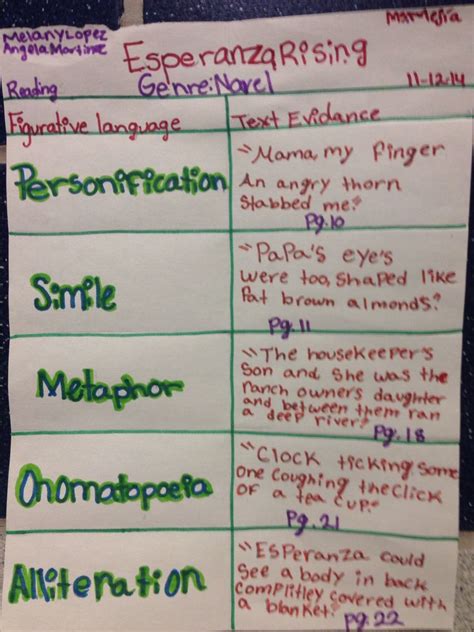 Melany Lopez
Angela Martinez
Mr. Mejia
Esperanza Rising
Reading
Genre: Novel
11-12-14
Figurative language
Text Evidance
Personification
"Mama, my finger
An angry thorn
stabbed me."
Pg. 10
Simile
"Papa's eye's
were too, shaped like
Fat brown almonds."
Pg. 11
Metaphor
"The housekeeper's
son and she was the
ranch owners daughter
and between them ran
a deep river."
Pg. 18
Onomatopoeia
"Clock ticking some
one coughing the click
of a tea cup."
Pg. 21
Alliteration
"Esperanza could
see a body in back
complitley covered with
a blanket."
Pg. 22